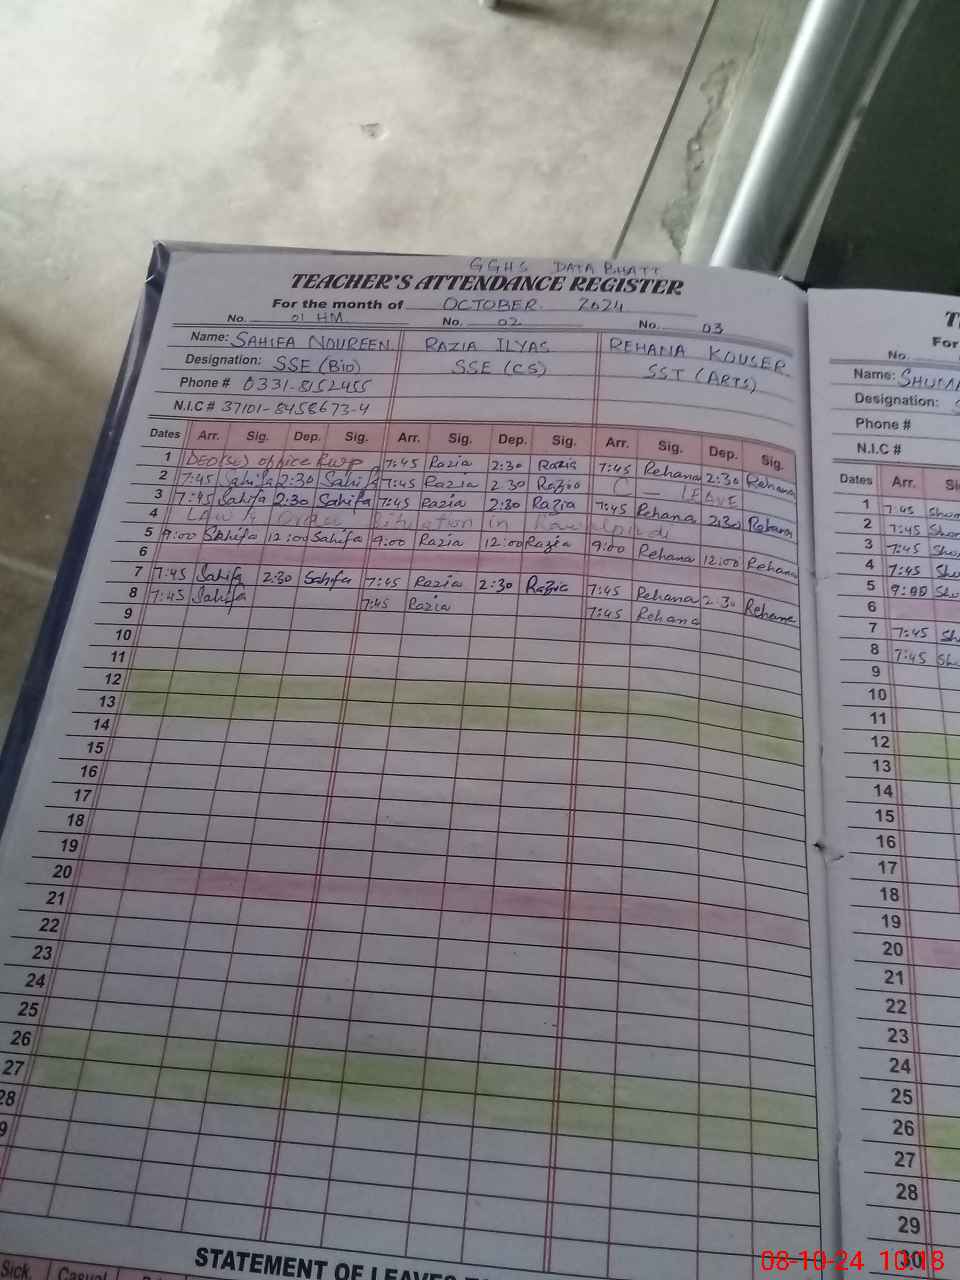 GGHS DATA BHATT
TEACHER'S ATTENDANCE REGISTER
For the month of OCTOBER. 2024
No. 01 HM No. 02 No. 03
Name: SAHIFA NOUREEN RAZIA ILYAS REHANA KOUSER
Designation: SSE (Bio) SSE (CS) SST (ARTS)
Phone # 0331-8152455
N.I.C # 37101-8458673-4
Dates Arr. Sig. Dep. Sig. Arr. Sig. Dep. Sig. Arr. Sig. Dep. Sig.
1 DEO(SE) office Rwp 7:45 Razia 2:30 Razia 7:45 Rehana 2:30 Rehana
2 7:45 Sahifa 2:30 Sahifa 7:45 Razia 2 30 Razia C — LEAVE
3 7:45 Sahifa 2:30 Sahifa 7:45 Razia 2:30 Razia 7:45 Rehana 2:30 Rehana
4 LAW & Order Situation in Rawalpindi
5 9:00 Sahifa 12:00 Sahifa 9:00 Razia 12:00 Razia 9:00 Rehana 12:00 Rehana
6
7 7:45 Sahifa 2:30 Sahifa 7:45 Razia 2:30 Razia 7:45 Rehana 2:30 Rehana
8 7:45 Sahifa 7:45 Razia 7:45 Rehana
9
10
11
12
13
14
15
16
17
18
19
20
21
22
23
24
25
26
27
28
9
STATEMENT OF LEAVES
Sick. Casual
For
No.
Name: SHUMA
Designation:
Phone #
N.I.C #
Dates Arr.
1 7:45
2 7:45
3 7:45
4 7:45
5 9:00
6
7 7:45
8 7:45
9
10
11
12
13
14
15
16
17
18
19
20
21
22
23
24
25
26
27
28
29
30
08-10-24 10:18